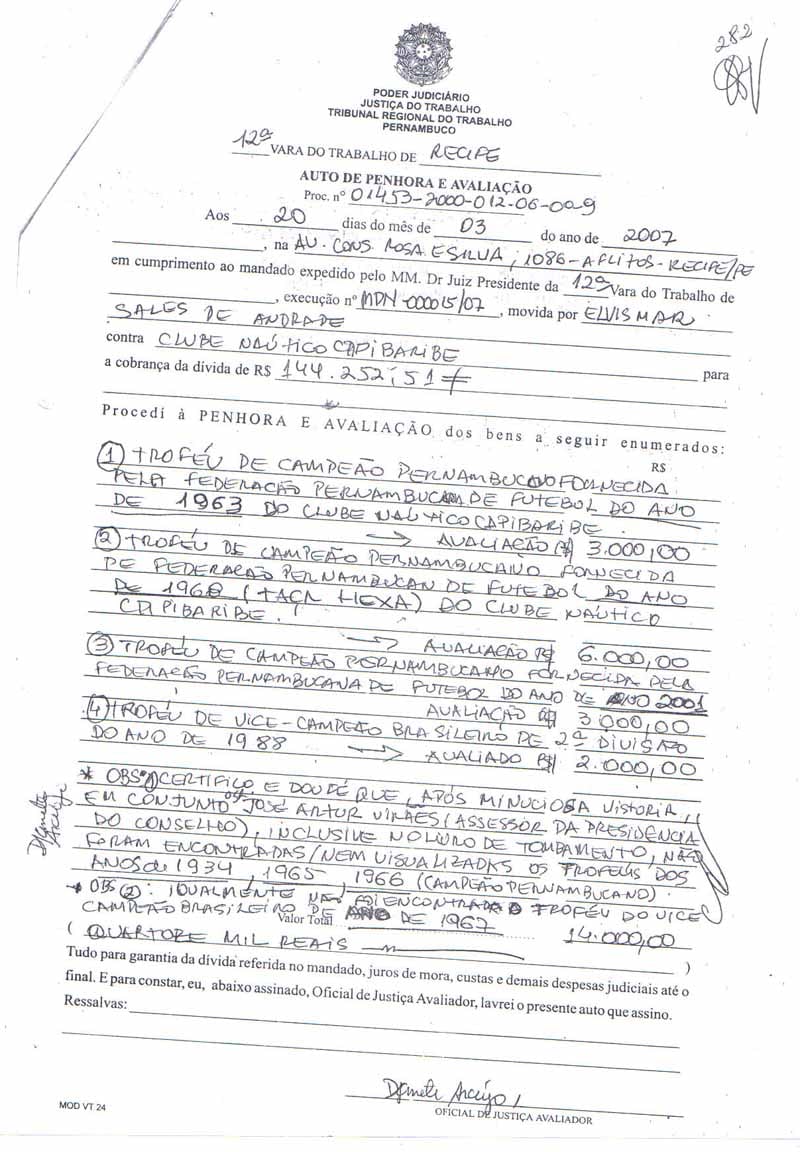 282
PODER JUDICIÁRIO
JUSTIÇA DO TRABALHO
TRIBUNAL REGIONAL DO TRABALHO
PERNAMBUCO
12ª VARA DO TRABALHO DE RECIFE
AUTO DE PENHORA E AVALIAÇÃO
Proc. nº 01453-2000-012-06-00-9
Aos 20 dias do mês de 03 do ano de 2007
, na AV. CONS. ROSA E SILVA, 1086 - AFLITOS - RECIFE/PE
em cumprimento ao mandado expedido pelo MM. Dr Juiz Presidente da 12ª Vara do Trabalho de
, execução nº MDN-000015/07, movida por ELVISMAR
SALES DE ANDRADE
contra CLUBE NAÚTICO CAPIBARIBE
para
a cobrança da dívida de R$ 144.252,51
Procedi à PENHORA E AVALIAÇÃO dos bens a seguir enumerados:
R$
1 TROFÉU DE CAMPEÃO PERNAMBUCANO FORNECIDA
PELA FEDERAÇÃO PERNAMBUCANA DE FUTEBOL DO ANO
DE 1963 DO CLUBE NAÚTICO CAPIBARIBE.
→ AVALIAÇÃO R$ 3.000,00
2 TROFÉU DE CAMPEÃO PERNAMBUCANO FORNECIDA
DE FEDERAÇÃO PERNAMBUCAN DE FUTEBOL DO ANO
DE 1968 (TAÇA HEXA) DO CLUBE NAÚTICO
CAPIBARIBE.
→ AVALIAÇÃO R$ 6.000,00
3 TROFÉU DE CAMPEÃO PERNAMBUCANO FORNECIDA PELA
FEDERAÇÃO PERNAMBUCANA DE FUTEBOL DO ANO DE 2001
AVALIAÇÃO R$ 3.000,00
4 TROFÉU DE VICE-CAMPEÃO BRASILEIRO DE 2ª DIVISÃO
DO ANO DE 1988 → AVALIADO R$ 2.000,00
* OBS 1 CERTIFICO E DOU FÉ QUE, APÓS MINUCIOSA VISTORIA,
EM CONJUNTO JOSÉ ARTUR (ASSESSOR DA PRESIDÊNCIA
DO CONSELHO), INCLUSIVE NO LIVRO DE TOMBAMENTO, NÃO
FORAM ENCONTRADAS/NEM VISUALIZADAS OS TROFÉUS DOS
ANOS de 1934, 1965, 1966 (CAMPEÃO PERNAMBUCANO).
* OBS (2): IGUALMENTE NÃO FOI ENCONTRADA O TROFÉU DO VICE
CAMPEÃO BRASILEIRO DE DE 1967
Valor Total 14.000,00
( QUARTORE MIL REAIS )
Tudo para garantia da dívida referida no mandado, juros de mora, custas e demais despesas judiciais até o
final. E para constar, eu, abaixo assinado, Oficial de Justiça Avaliador, lavrei o presente auto que assino.
Ressalvas:
Araújo
OFICIAL DE JUSTIÇA AVALIADOR
MOD VT 24